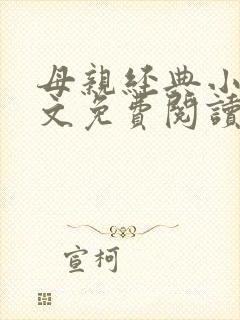 母親經典小
文免費閱讀
宣柯